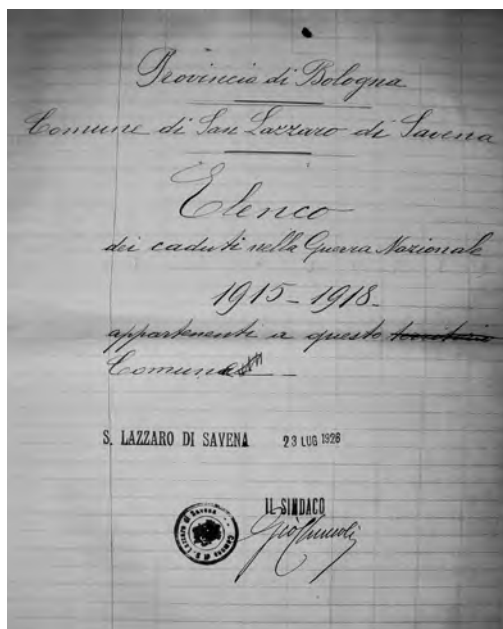 Provincia di Bologna
Comune di San Lazzaro di Savena
Elenco
dei caduti nella Guerra Nazionale
1915-1918-
appartenenti a questo territorio
Comune
S. LAZZARO DI SAVENA 23 LUG 1926
IL SINDACO
Comune di S. Lazzaro di Savena